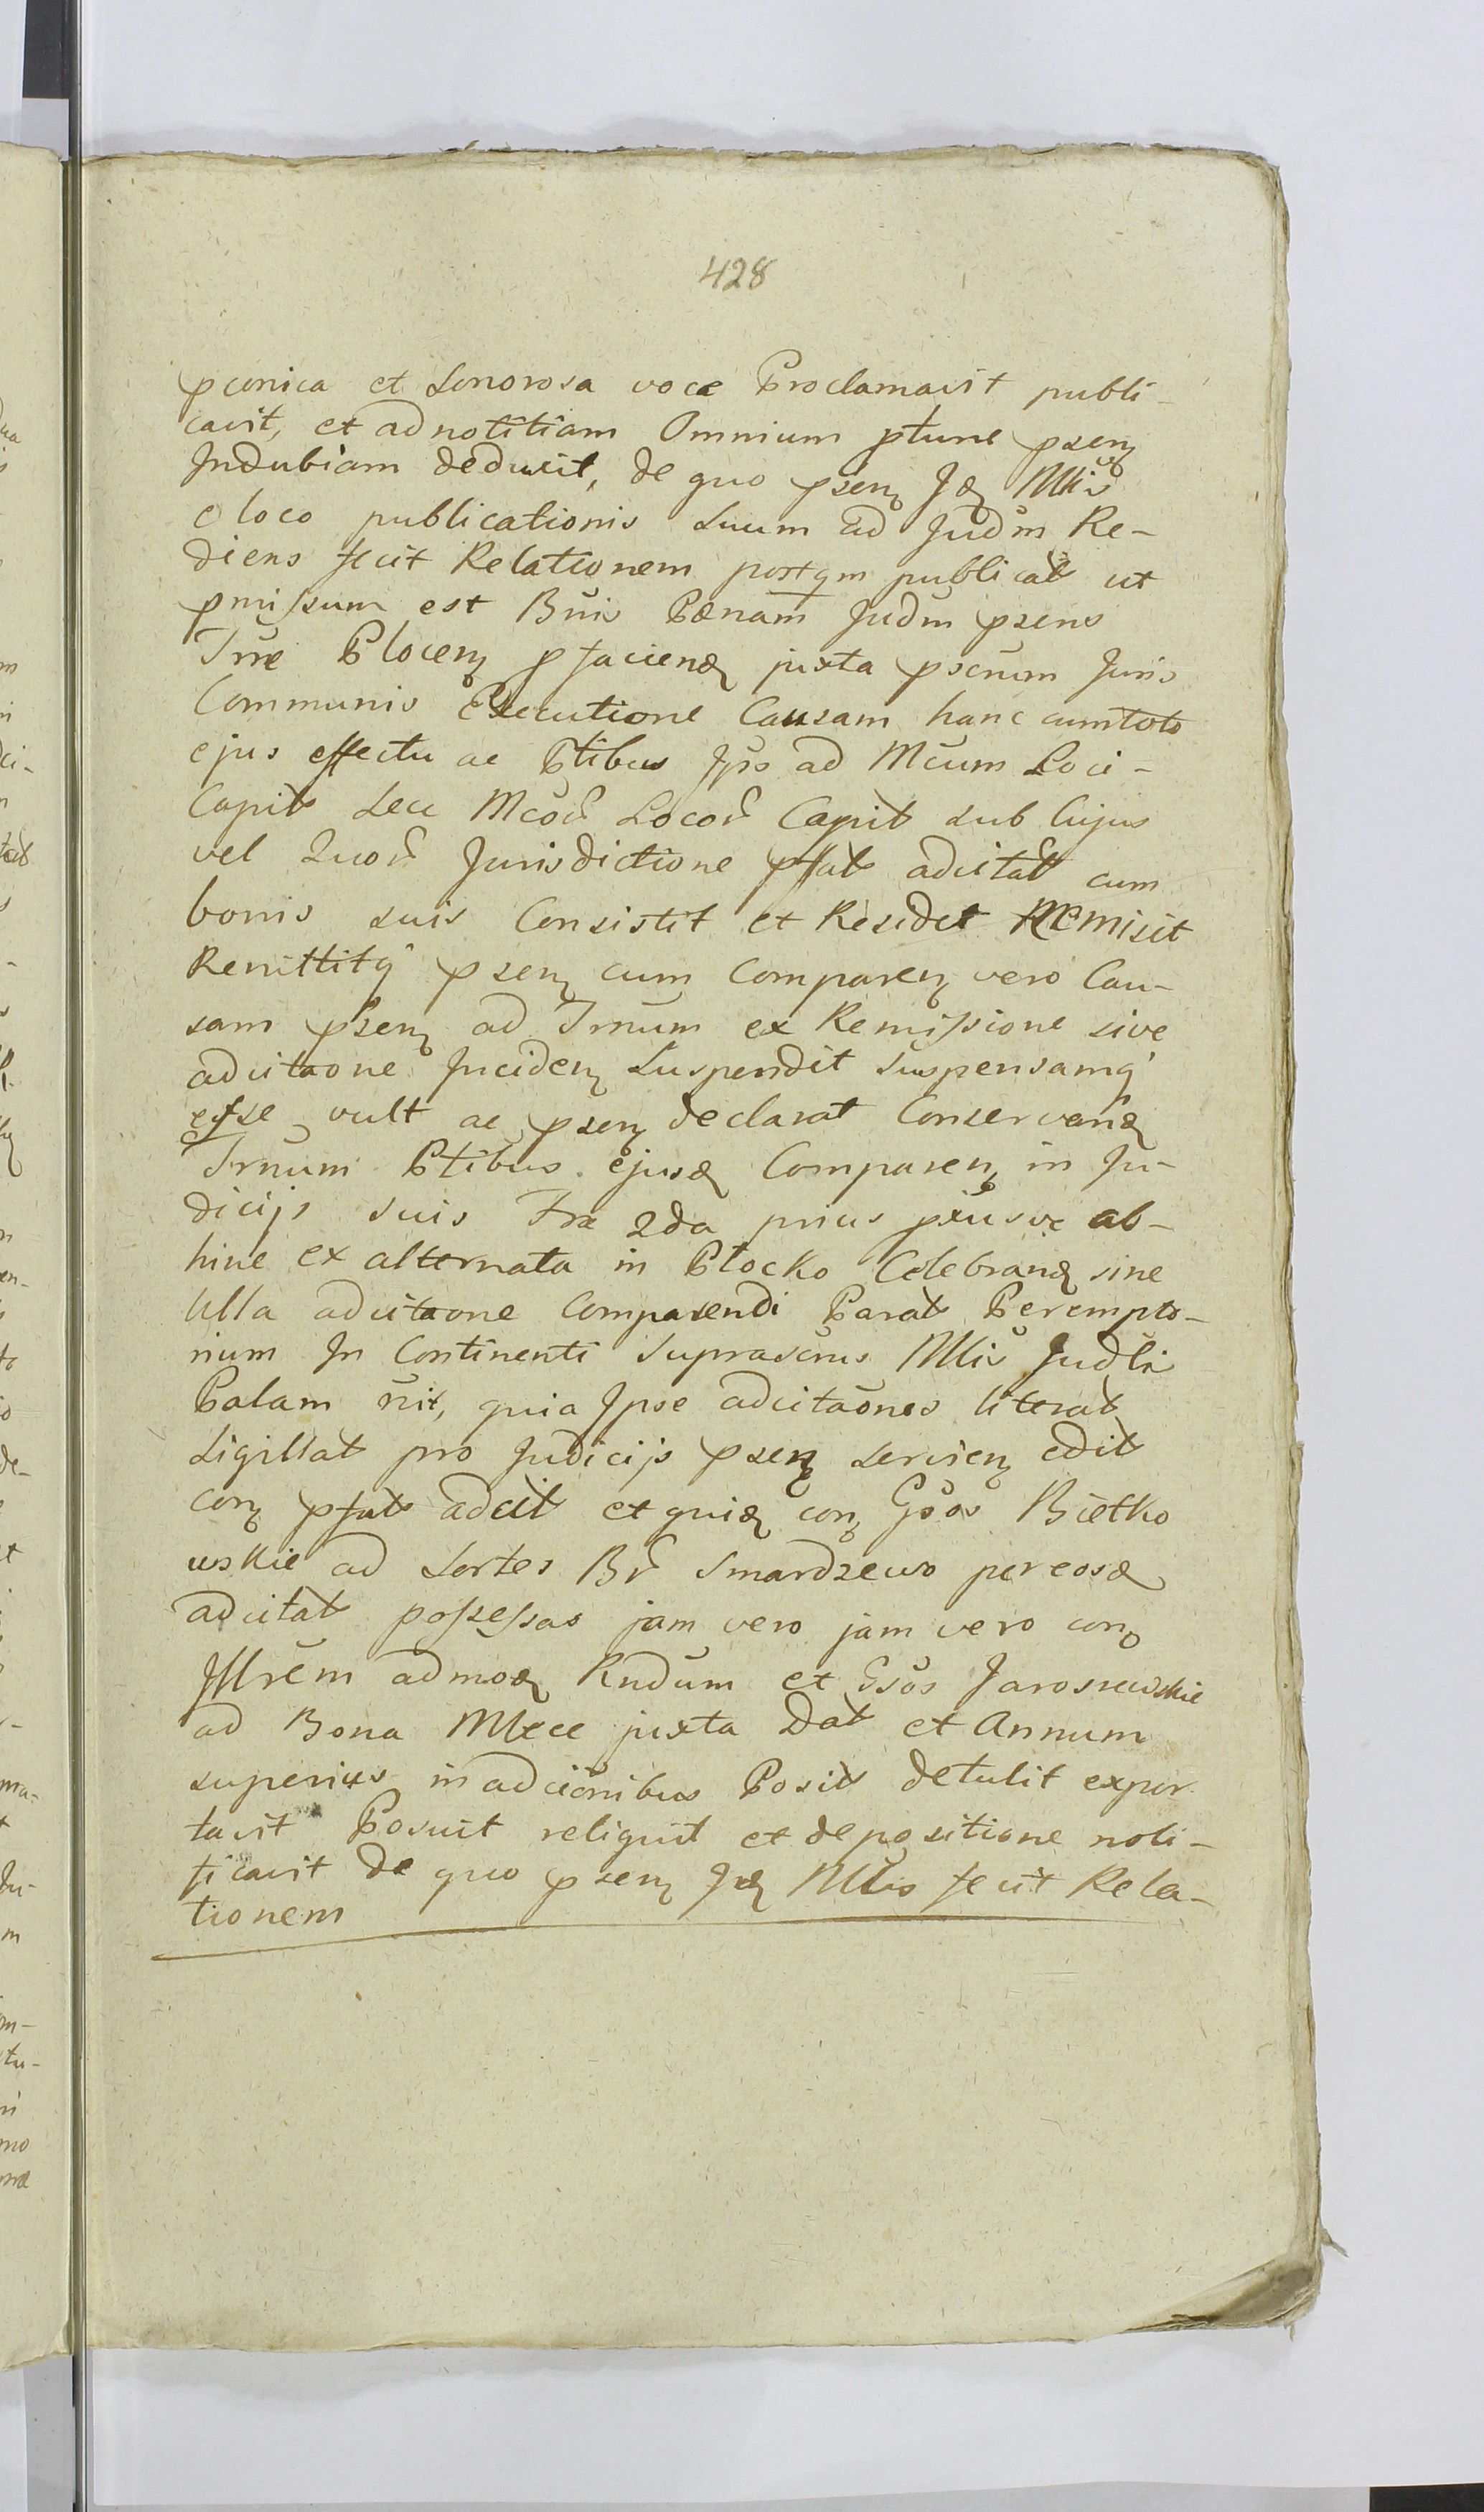 428
pconica et Sonorosa voce Proclamavit publi-
cavit, et ad notitiam Omnium ptunc psenꝫ
Indubiam deduxit, de quo psenꝫ Idꝫ Mlis
e loco publicationis suum ad Judm Re-
diens fecit Relationem postqm publicat ut
pmissum est Bnis Pænam Judm psens
Trre Plocenꝫ p faciendꝫ juxta pscrum Juris
Communis Executione Causam hanc cum toto
ejus effectu ac Ptibus Ips ad Mcum Loci-
Capit seu Mcor Locor Capit sub Cujus
vel Quor Jurisdictione pfat adcitat cum
bonis suis Consistit et Residet Remisit
Remittitq psenꝫ cum Comparenꝫ vero Cau-
sam psenꝫ ad Trnum ex Remissione sive
adcitaone Incidenꝫ Suspendit Suspensamq
esse vult ac psenꝫ declarat Conservandꝫ
Trnum Ptibus ejusdꝫ Comparenꝫ in Ju-
dicijs suis Fra 2da prius pxiusve ab-
hinc ex alternata in Płocko Celebrandꝫ sine
Ulla adcitaone Comparendi Parat Perempto-
rium In Continenti Suprascrus Mlis Judlis
Palam rit, quia Ipse adcitaones literat
Sigillat pro Judicijs psenꝫ servienꝫ edit
conꝫ pfat adcit et quidꝫ conꝫ Gsos Bietko
wskie ad Sortes Br Smardzewo per eosdꝫ
adcitat possessas jam vero jam vero conꝫ
Illrem admodꝫ Rndum et Gsos Jaroszewskie
ad Bona juxta Dat et Annum
superius in adcionibus Posit detulit expor
tavit Posuit reliquit et depositione noti-
ficavit de quo psenꝫ Idꝫ Mlis fecit Rela-
tionem